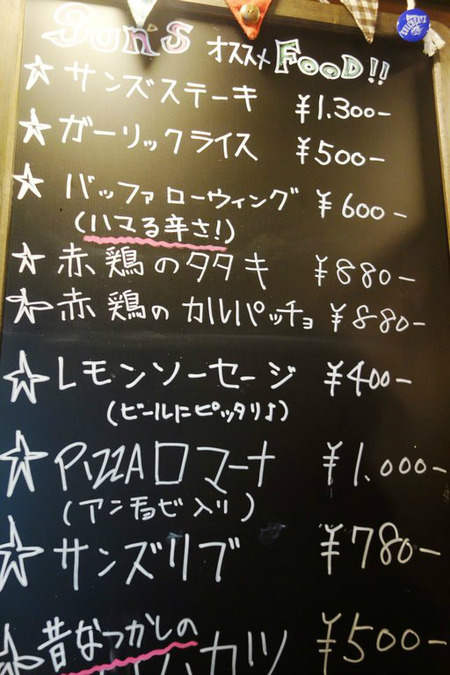 Sun's オススメ FOOD!!
☆サンズステーキ ¥1.300-
☆ガーリックライス ¥500-
☆バッファローウィング ¥600-
(ハマる辛さ!)
☆赤鶏のタタキ ¥880-
☆赤鶏のカルパッチョ ¥880-
☆レモンソーセージ ¥400-
(ビールにピッタリ♪)
☆PIZZAロマーナ ¥1.000-
(アンチョビ入り)
☆サンズリブ ¥780-
☆昔なつかしの
ハムカツ ¥500-